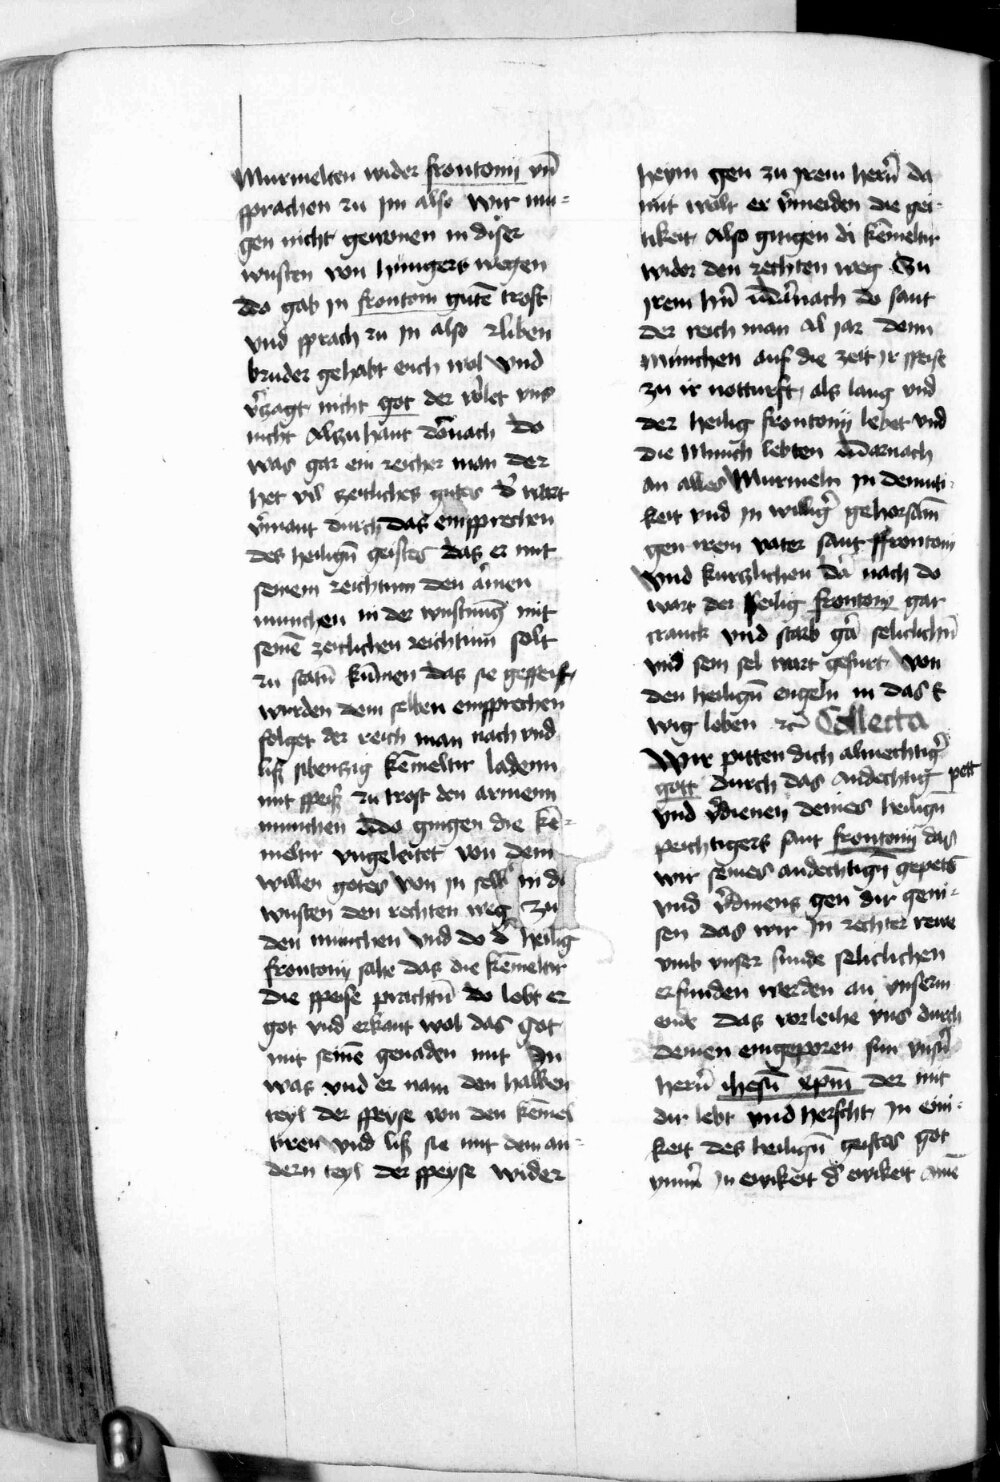 Murmelten wider frontonij vn̄
sprachen zu Jm also Wir mu=
gen nicht gewonen in diser
wusten von hungers wegen
Do gab in frontoni gutē trost
vnd sprach zu in also liben
bruder gehabt euch wol vnd
v̄zagt nicht got der v̄let vns
nicht Alzuhant dornach Do
was gar ein reicher man der
het vil zeitliches gutes d̄ wart
v̄mant durch das einsprechen
des heiligen̄ geistes das er mit
seinem reichtum den armen
munchen in der wustnung mit
seinē zeitlichen reichtum solt
zu statn̄ kūmen das sie gespeist
wurden dem selben einsprechen
folget der reich man nach vnd
liß sibentzig kēmeltir ladenn
mit speiß zu trost den armenn
munchen Do gingen die kē=
meltir vngeleitet von dem
willen gotes von in selb' in di
wusten den rechten weg zu
den munchen vnd do d̄ heilig
frontonij sahe das die kēmeltir
die speise prachtn̄ do lobt er
got vnd erkant wol das got
mit seinē genaden mit In
was vnd er nam den halben
teyl der speyse von den kēmel
tiren vnd liß sie mit dem an=
dern teyl der speyse wider
heym gen zu jrem hern̄ da
mit wolt er v̄meiden die gei=
tikeit Also gingen di kēmeltir
wider den rechten weg zu
jrem hn̄ Darnach do sant
der reich man al jar denn
munchen auf die zeit jr speise
zu ir notturft als lang vnd
der heilig frontonij lebet vnd
die Munch lebten Darnach
an alles Murmeln in demuti=
keit vnd in willig' gehorsam̄
gen irem vater sant ffrontonij
vnd kurtzlichen dar nach do
wart der heilig frontony gar
cranck vnd starb gar seliclichn̄
vnd sein sel wart gefurt von
den heiligen̄ engeln in das e
wig leben etc̄ Collecta
Wir pitten dich almechtig'
gott durch das andechtig pett
vnd v̄dienen deines heilign̄
peichtigers sant frontonij das
wir seines andechtign̄ gepets
vnd v̄dinens gen dir geni=
sen das wir In rechter rewe
vmb vnser sunde seliclichen
erfunden werden an vnserm
ende das vorleihe vns durch
deinen eingeporen sun vnsn̄
hern̄ ihesū xpm̄ der mit
dir lebt vnd herscht In eini=
keit des heiligen̄ geistes got
ymm̄ In ewikeit d̄ ewikeit amē